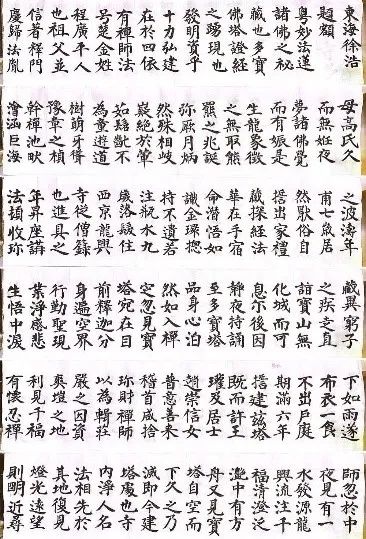 東海徐浩
題額
粵妙法蓮
諸佛之秘
藏也多寶
佛塔證經
之踴現也
發明資乎
十力弘建
在於四依
有禪師法
號楚金姓
程廣平人
也祖父並
信著釋門
慶歸法胤
母高氏久
而無妊夜
夢諸佛覺
而有娠是
生龍象徵
之無取熊
羆之兆誕
弥厥月炳
然殊相岐
嶷絕於葷
茹髫齔不
為童遊道
樹萌牙聳
豫章之楨
幹禪池畎
澮涵巨海
之波濤年
甫七歲居
然猒俗自
誓出家禮
藏探經法
華在手宿
命潛悟如
識金環揔
持不遺若
注瓶水九
歲落髮住
西京龍興
寺從僧籙
也進具之
年昇座講
法頓收珎
藏異窮子
之疾走直
詣寶山無
化城而可
息尒後因
靜夜持誦
至多寶塔
品身心泊
然如入禪
定忽見寶
塔宛在目
前釋迦分
身遍空界
行勤聖現
業淨感悲
生悟中淚
下如雨遂
布衣一食
不出戶庭
期滿六年
誓建茲塔
既而許王
瓘及居士
趙崇信女
普意善来
稽首咸捨
珎財禪師
以為輯莊
嚴之因資
爽塏之地
利見千福
有懷忍禪
師忽於中
夜見有一
水發源龍
興流注千
福清澄泛
灧中有方
舟又見寶
塔自空而
下久之乃
滅即今建
塔處也寺
內淨人名
法相先於
其地復見
燈光遠望
則明近尋